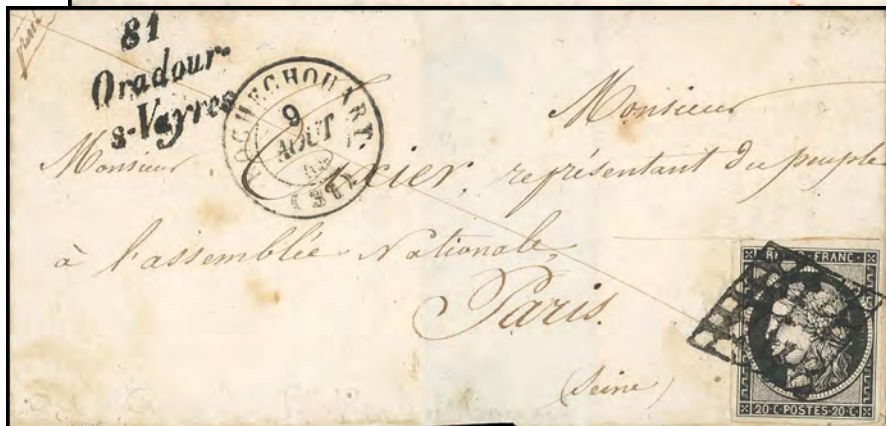 81
Oradour-
s-Vayres
ROCHECHOUART.
9
AOUT
(81)
Monsieur
Monsieur représentant du peuple
à l'assemblée Nationale,
Paris.
(Seine)
REPUB FRANC
20·C·POSTES·20·C·